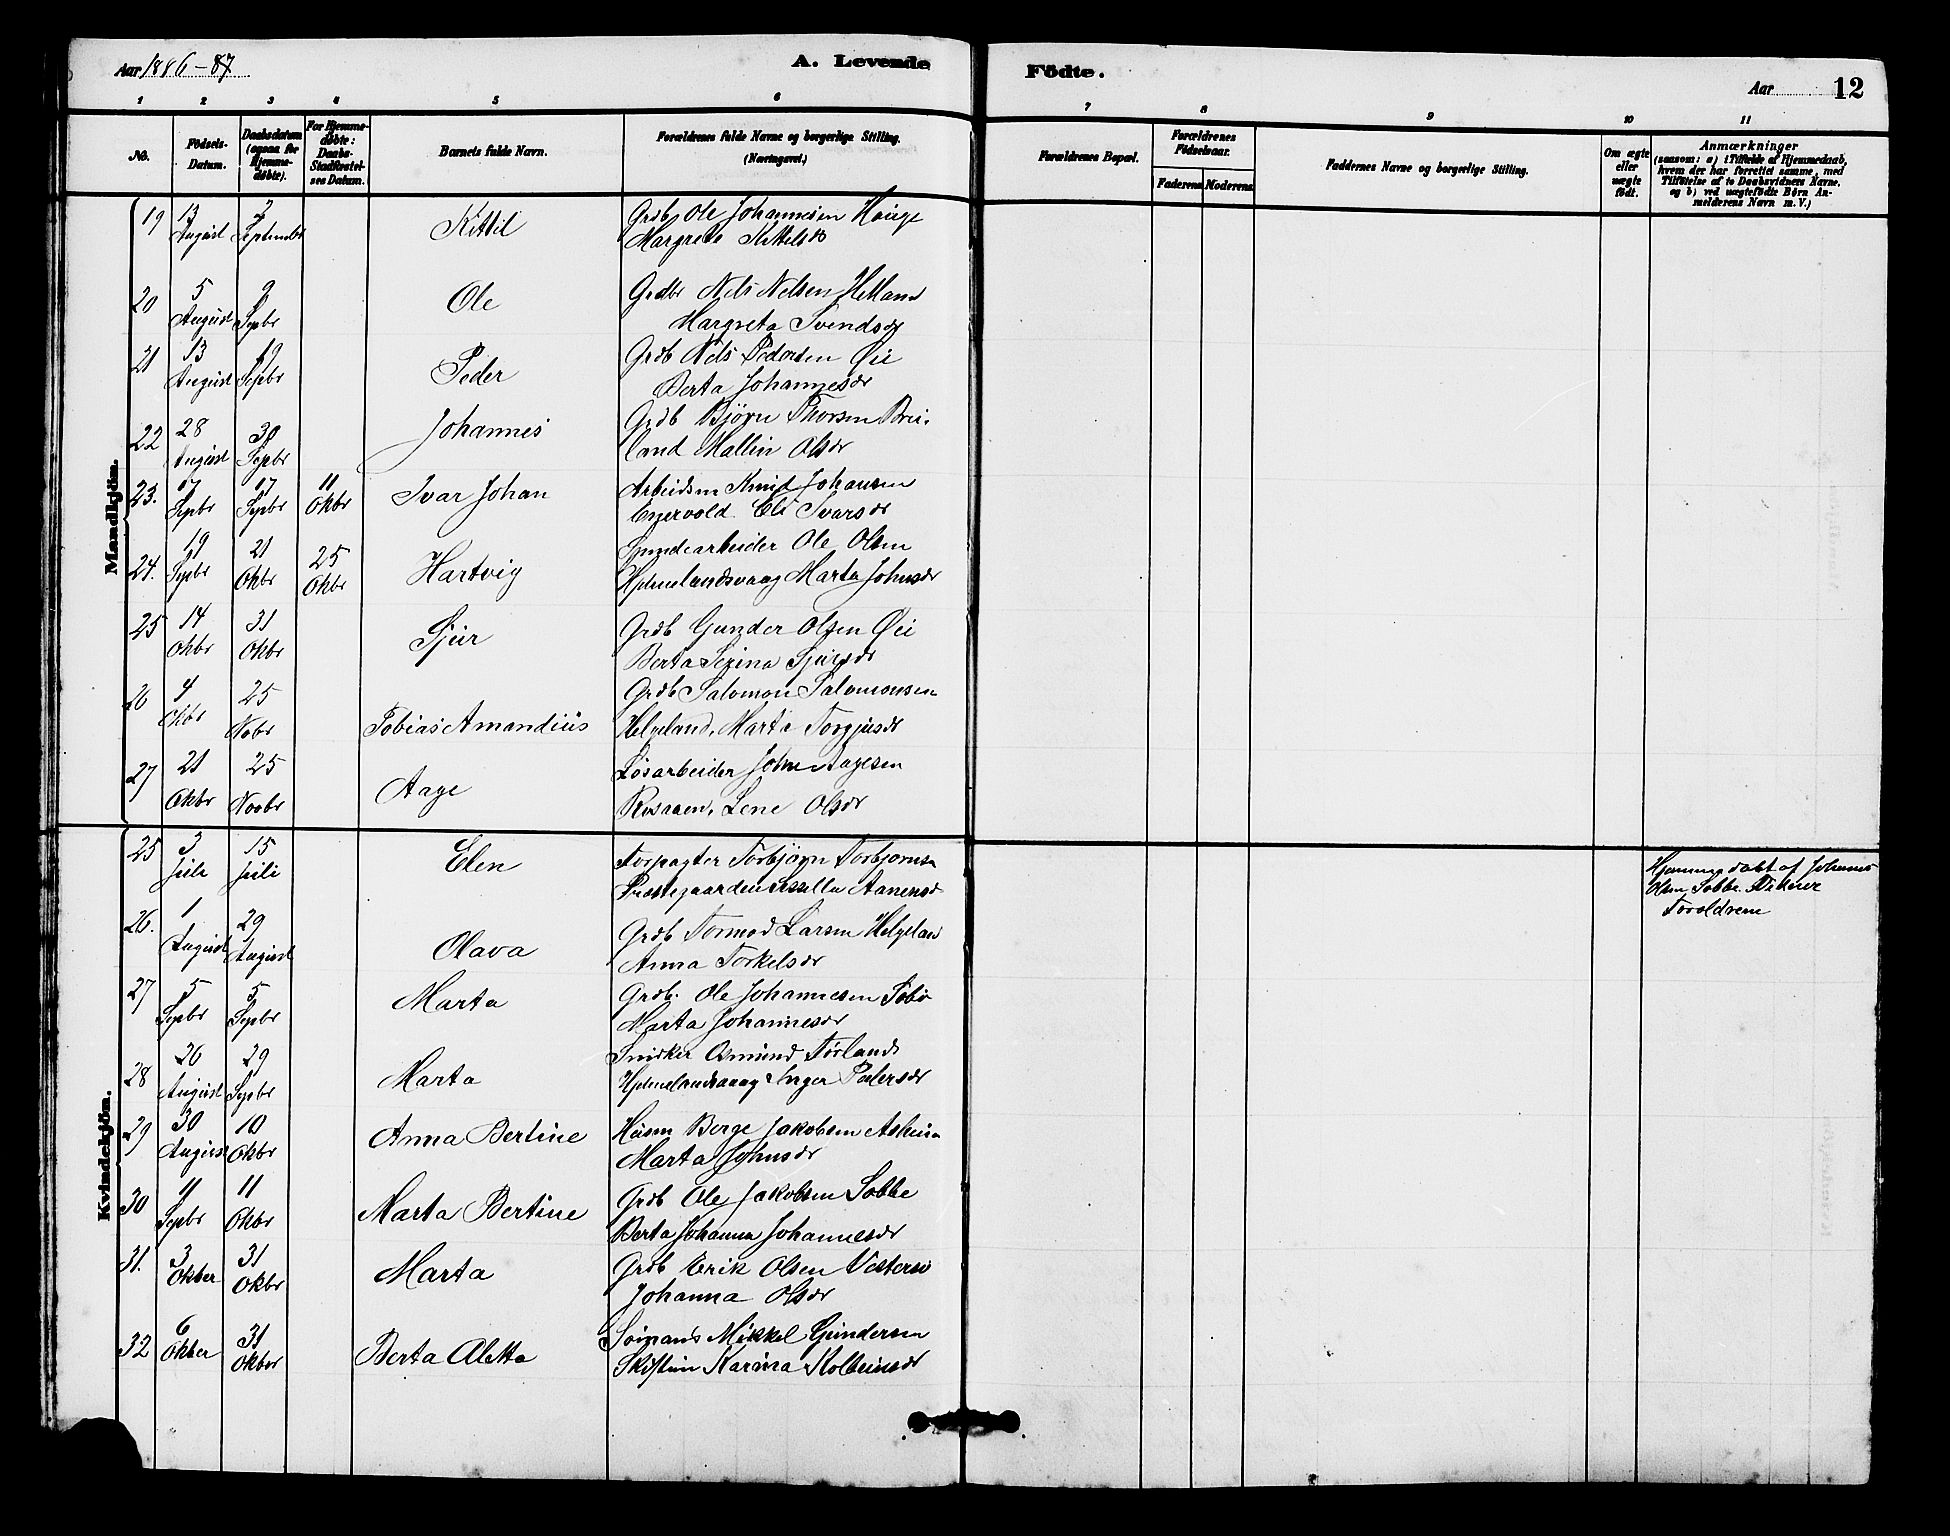 Aar 1886-87
A. Levende
Födte.
Aar 12
1 2 3 4 5 6 7 8 9 10 11
No.
Födsels-
Datum.
Daabsdatum
(ogsaa for
Hjemme-
döbte).
For Hjemme-
döbte:
Daabs-
Stadfæstel-
ses Datum.
Barnets fulde Navn.
Forældrenes fulde Navne og borgerlige Stilling.
(Næringsvei.)
Forældrenes Bopæl.
Forældrenes
Födselsaar.
Faderens. Moderens.
Faddernes Navne og borgerlige Stilling.
Om ægte
eller
uægte
födt.
Anmærkninger
(saasom: a) i Tilfælde af Hjemmedaab,
hvem der har forrettet samme, med
Tilföielse af to Daabsvidners Navne,
og b) ved uægtefödte Börn An-
melderens Navn m. V.)
Mandkjön.
19 13 August September Kittil Grdb Ole Johannesen Hauge
Margrete Kittelsdr
20 5 August 9 Sepbr Ole Grdbr Nels Nelsen Helland
Margreta Svendsdr
21 13 August 19 Sepbr Peder Grdb Nels Pedersen Øie
Berta Johannesdr
22 28 August 30 Sepbr Johannes Grdb Bjørn Thorsen Brei-
land Mallin Olsdr
23. 17 Sepbr 17 Sepbr 11 Okbr Ivar Johan Arbeidsm Knud Johansen
Eli Ivarsdr
24. 19 Sepbr 21 Okbr 25 Okbr Hartvig Ole Olsen
Hjelmelandsvaag Marta Johnsdr
25 14 Okbr 31 Okbr Sjur Grdb Gunder Olsen Øie
Berta Serina Sjursdr
26 4 Okbr 25 Nobr Tobias Amandius Grdb Salomon Salomonsen
Helgeland, Marta Torgjusdr
27 21 Okbr 25 Novbr Aage Løsarbeider John Aagesen
Rosaaen, Lene Olsdr
Kvindekjön.
25 3 Juli 15 Juli Elen Forpagter Torbjørn Torbjornsen
Prestegaarden Sissella Aanensdr
Hjemmedøbt af Johannes
Olsen Sobbe.
Foroldrene
26. 1 August 29 August Olava Grdb Tormod Larsen Helgeland
Anna Torkelsdr
27 5 Sepbr 5 Sepbr Marta Grdb. Ole Johannesen
Marta Johannesdr
28 26 August 29 Sepbr Marta Snidker Osmund Førland
Hjelmelandsvaag Inger Pedersdr
29 30 August 10 Okbr Anna Bertine Husm Børge Jakobsen
Marta Johnsdr
30 11 Sepbr 11 Okbr Marta Bertine Grdb Ole Jakobsen Sobbe
Berta Johanna Johannesdr
31. 3 Okber 31 Okbr Marta Grdb Erik Olsen
Johanna Olsdr
32 6 Okber 31 Okber Berta Aletta Mikkel Gundersen
Karina Kolbeinsdr